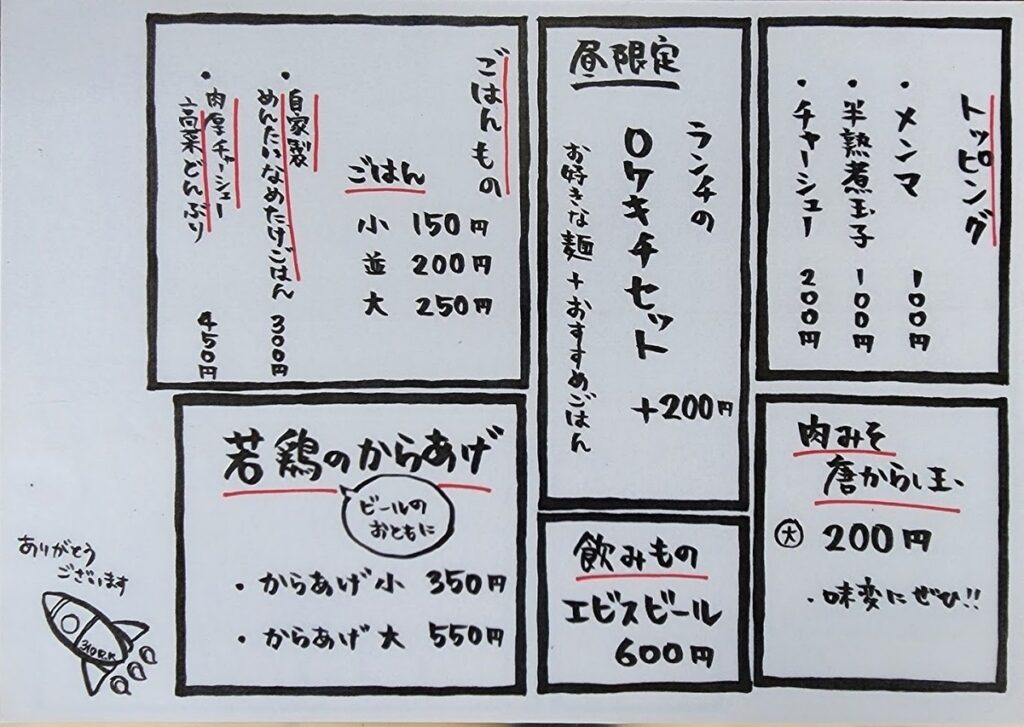 トッピング
・メンマ 100円
・半熟煮玉子 100円
・チャーシュー 200円
肉みそ
唐からし玉
大 200円
・味変にぜひ!!
昼限定
ランチの
ロケキチセット
+200円
お好きな麺+おすすめごはん
飲みもの
エビスビール
600円
ごはんもの
ごはん
小 150円
並 200円
大 250円
・自家製
めんたいなめたけごはん 300円
・肉厚チャーシュー
高菜どんぶり 450円
若鶏のからあげ
ビールの
おともに
・からあげ小 350円
・からあげ大 550円
ありがとう
ございます